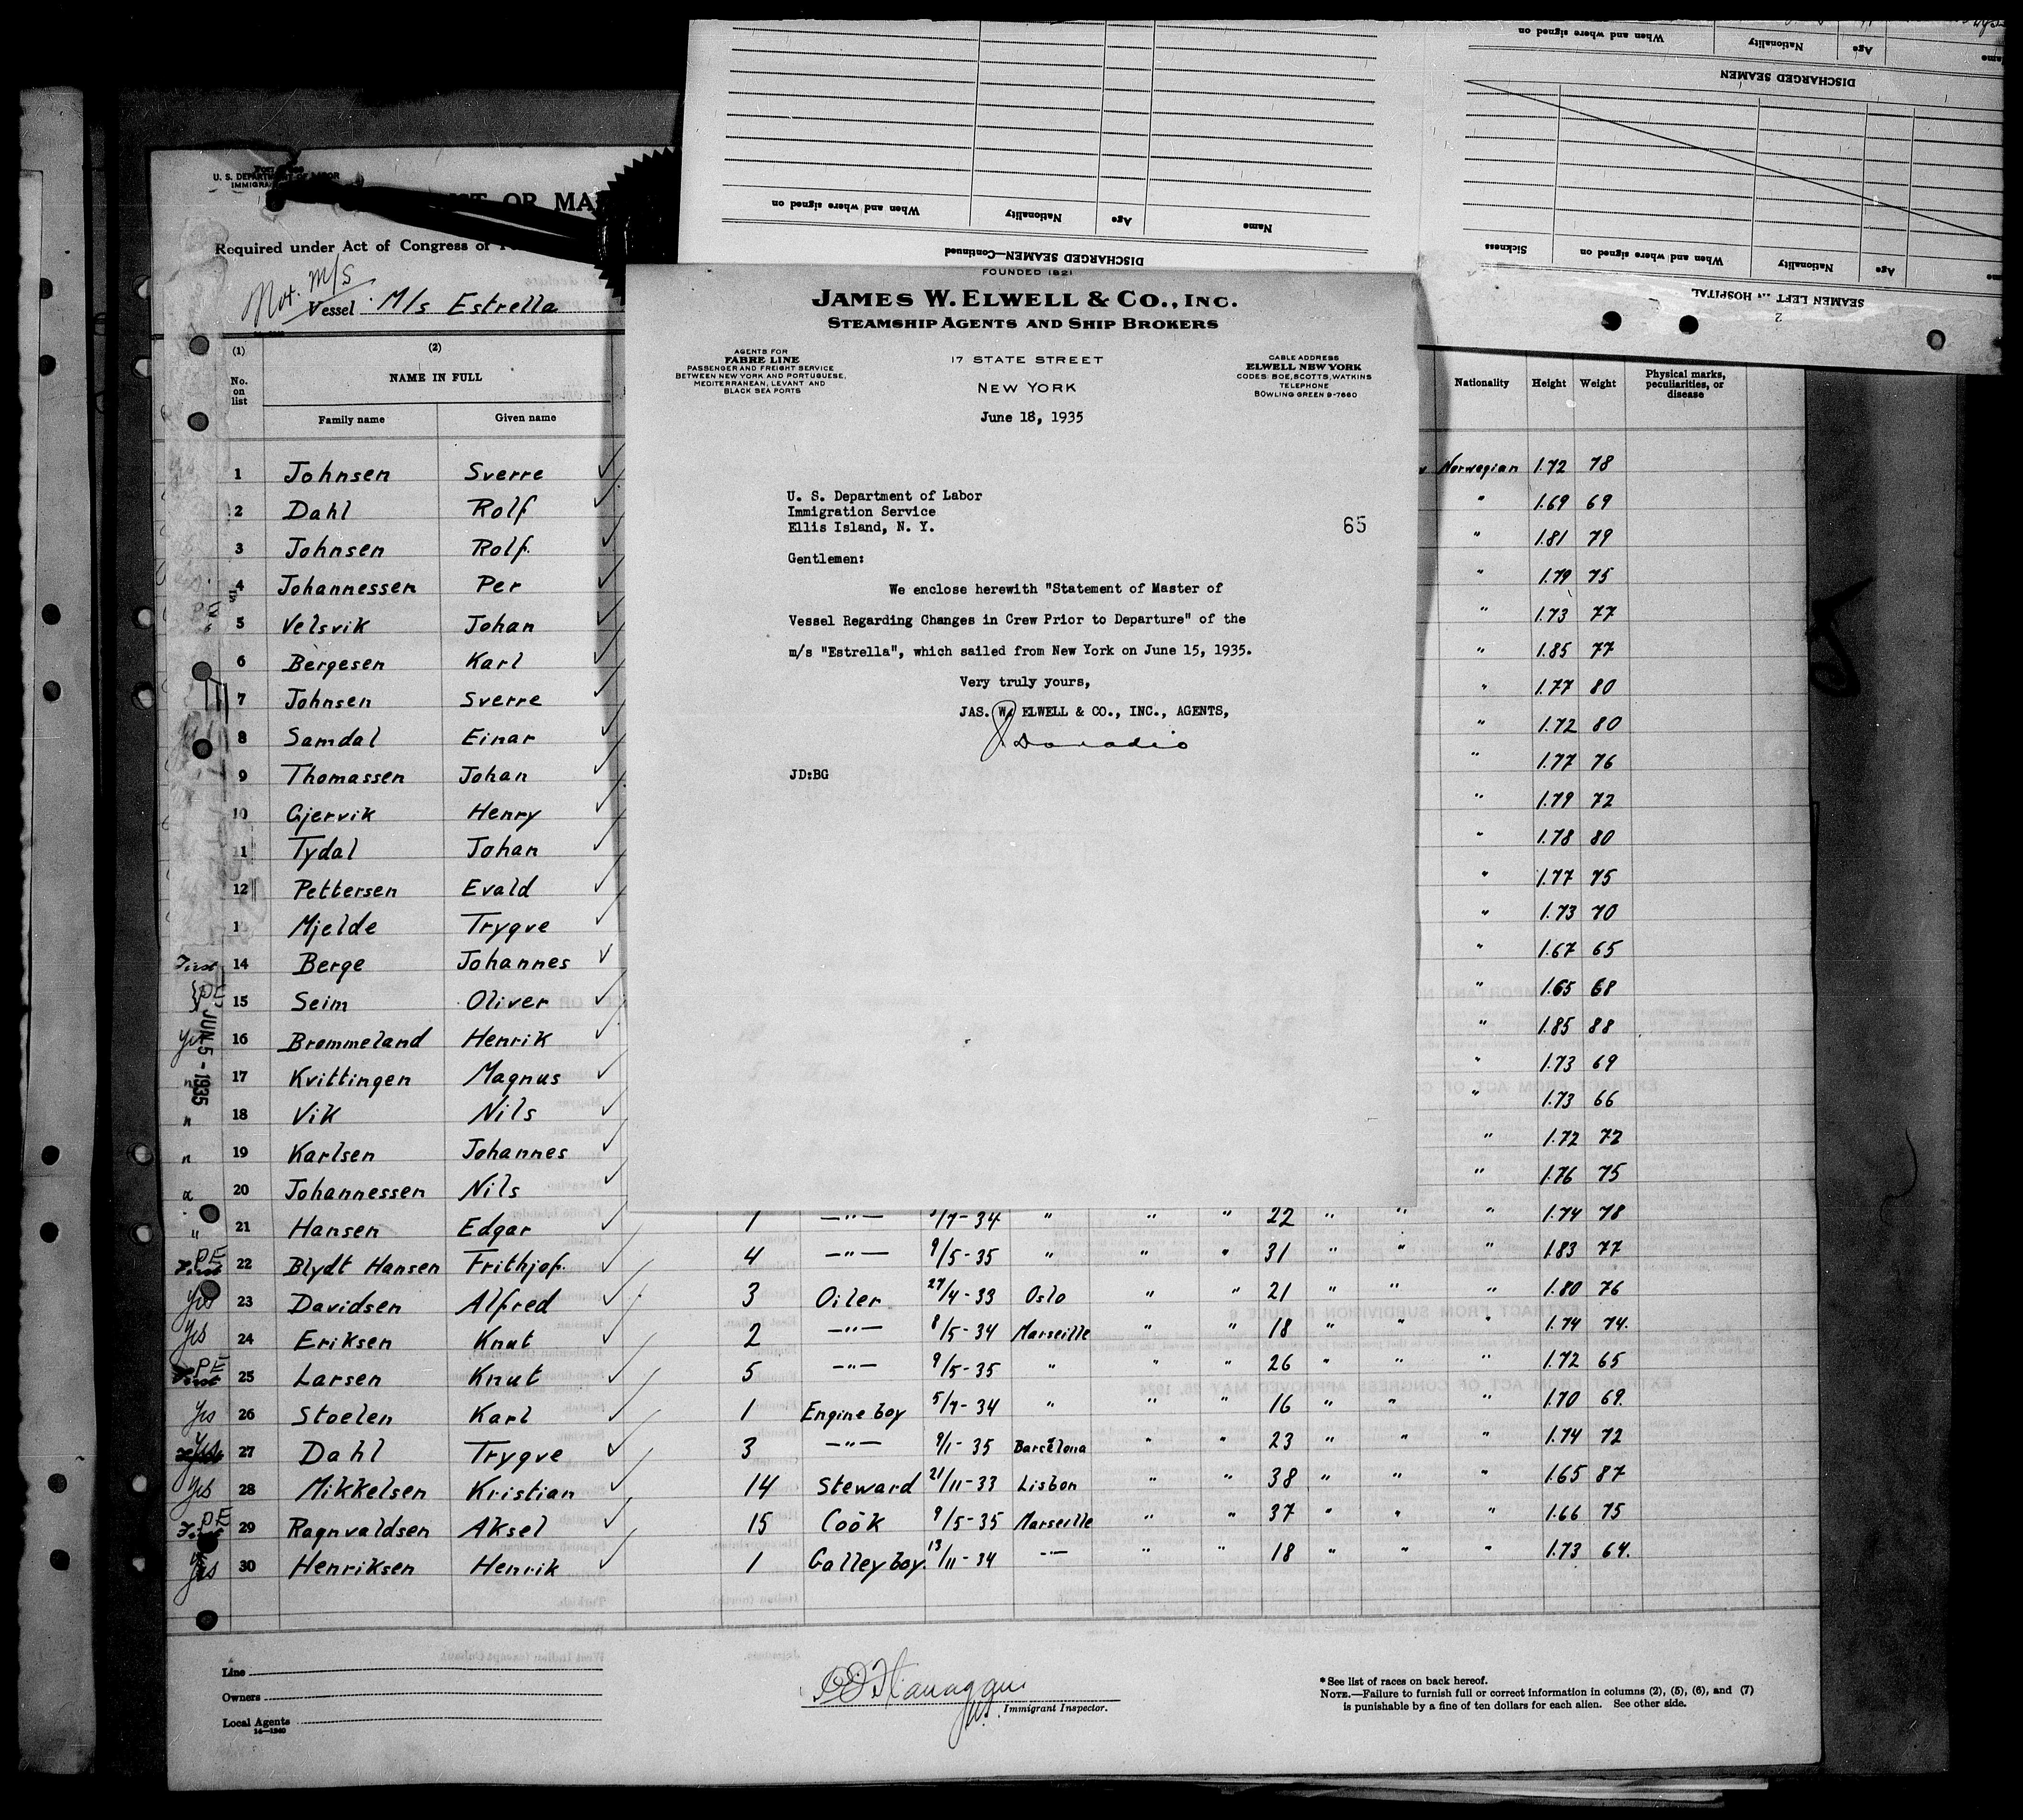 When and where signed on Nationality Age
DISCHARGED SEAMEN
When and where signed on Nationality Age Name
DISCHARGED SEAMEN—Continued
Sickness When and where signed on Nationality Age
SEAMEN LEFT IN HOSPITAL
2
U. S. DEPARTMENT OF LABOR
OR
Required under Act of Congress of
M/S
Vessel M/s Estrella
FOUNDED 1821
JAMES W. ELWELL & CO., INC.
STEAMSHIP AGENTS AND SHIP BROKERS
AGENTS FOR
FABRE LINE
PASSENGER AND FREIGHT SERVICE
BETWEEN NEW YORK AND PORTUGUESE,
MEDITERRANEAN, LEVANT AND
BLACK SEA PORTS
17 STATE STREET
NEW YORK
CABLE ADDRESS
ELWELL NEW YORK
CODES: BOE, SCOTTS, WATKINS
TELEPHONE
BOWLING GREEN 9-7660
June 18, 1935
U. S. Department of Labor
Immigration Service
Ellis Island, N. Y.
65
Gentlemen:
We enclose herewith "Statement of Master of
Vessel Regarding Changes in Crew Prior to Departure" of the
m/s "Estrella", which sailed from New York on June 15, 1935.
Very truly yours,
JAS. W. ELWELL & CO., INC., AGENTS,
JD:BG
(1) (2)
No. on list NAME IN FULL Nationality Height Weight Physical marks, peculiarities, or disease
Family name Given name
1 Johnsen Sverre Norwegian 1.72 78
2 Dahl Rolf " 1.69 69
3 Johnsen Rolf. " 1.81 79
4 Johannessen Per " 1.79 75
5 Velsvik Johan " 1.73 77
6 Bergesen Karl " 1.85 77
7 Johnsen Sverre " 1.77 80
8 Samdal Einar " 1.72 80
9 Thomassen Johan " 1.77 76
10 Gjervik Henry " 1.79 72
11 Tydal Johan " 1.78 80
12 Pettersen Evald " 1.77 75
1 Mjelde Trygve " 1.73 70
First 14 Berge Johannes " 1.67 65
PE 15 Seim Oliver " 1.65 68
Yes 16 Brommeland Henrik " 1.85 88
" 17 Kvittingen Magnus " 1.73 69
" 18 Vik Nils " 1.73 66
" 19 Karlsen Johannes " 1.72 72
" 20 Johannessen Nils " 1.76 75
JUN 5 - 1935
" 21 Hansen Edgar 1 —"— /7-34 " " " 22 " " " 1.74 78
PE First 22 Blydt Hansen Frithjof. 4 —"— 9/5-35 " " " 31 " " " 1.83 77
Yes 23 Davidsen Alfred 3 Oiler 27/4-33 Oslo " " 21 " " " 1.80 76
Yes 24 Eriksen Knut 2 —"— 8/5-34 Marseille " " 18 " " " 1.74 74.
PE First 25 Larsen Knut 5 —"— 9/5-35 " " " 26 " " " 1.72 65
Yes 26 Stoelen Karl 1 Engine boy 5/7-34 " " " 16 " " " 1.70 69.
Yes 27 Dahl Trygve 3 —"— 9/1-35 Barcelona " " 23 " " " 1.74 72
Yes 28 Mikkelsen Kristian 14 Steward 21/11-33 Lisbon " " 38 " " " 1.65 87
PE First 29 Ragnvaldsen Aksel 15 Cook 9/5-35 Marseille " " 37 " " " 1.66 75
Yes 30 Henriksen Henrik 1 Galley boy. 13/11-34 —"— " " 18 " " " 1.73 64.
Line
Owners
Local Agents
14—1240
Immigrant Inspector.
* See list of races on back hereof.
NOTE.—Failure to furnish full or correct information in columns (2), (5), (6), and (7)
is punishable by a fine of ten dollars for each alien. See other side.